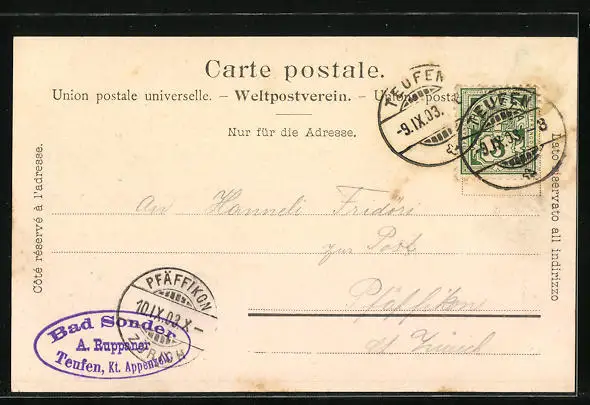 Carte postale.
Union postale universelle. – Weltpostverein. – Union postale
Nur für die Adresse.
Côté réservé à l'adresse.
Lato riservato all indirizzo
TEUFEN
-9.IX.03.
TEUFEN
-9.IX.03.
An Hanneli Fridöri
zur Post
Pfäffikon
Ct Zürich
PFÄFFIKON
10.IX.03.X-
ZÜRICH
Bad Sonder
A. Ruppaner
Teufen, Kt. Appenzell